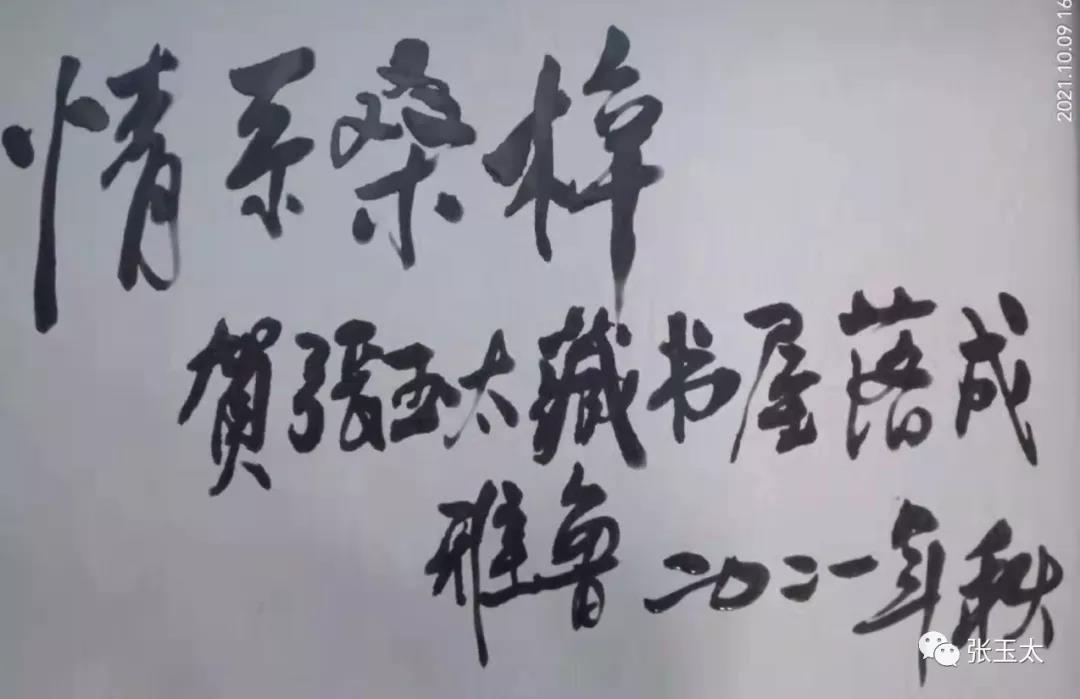 情系桑梓
賀張玉太藏书屋落成
雅鲁 二〇二一年秋
张玉太
2021.10.09 16